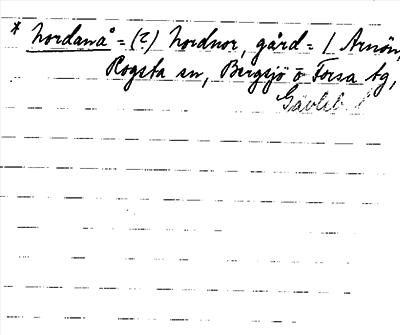 * Nordanå = (?) Nordnor, gård = / Arnön,
Rogsta sn, Bergsjö o Forsa tg,
Gävleb. l